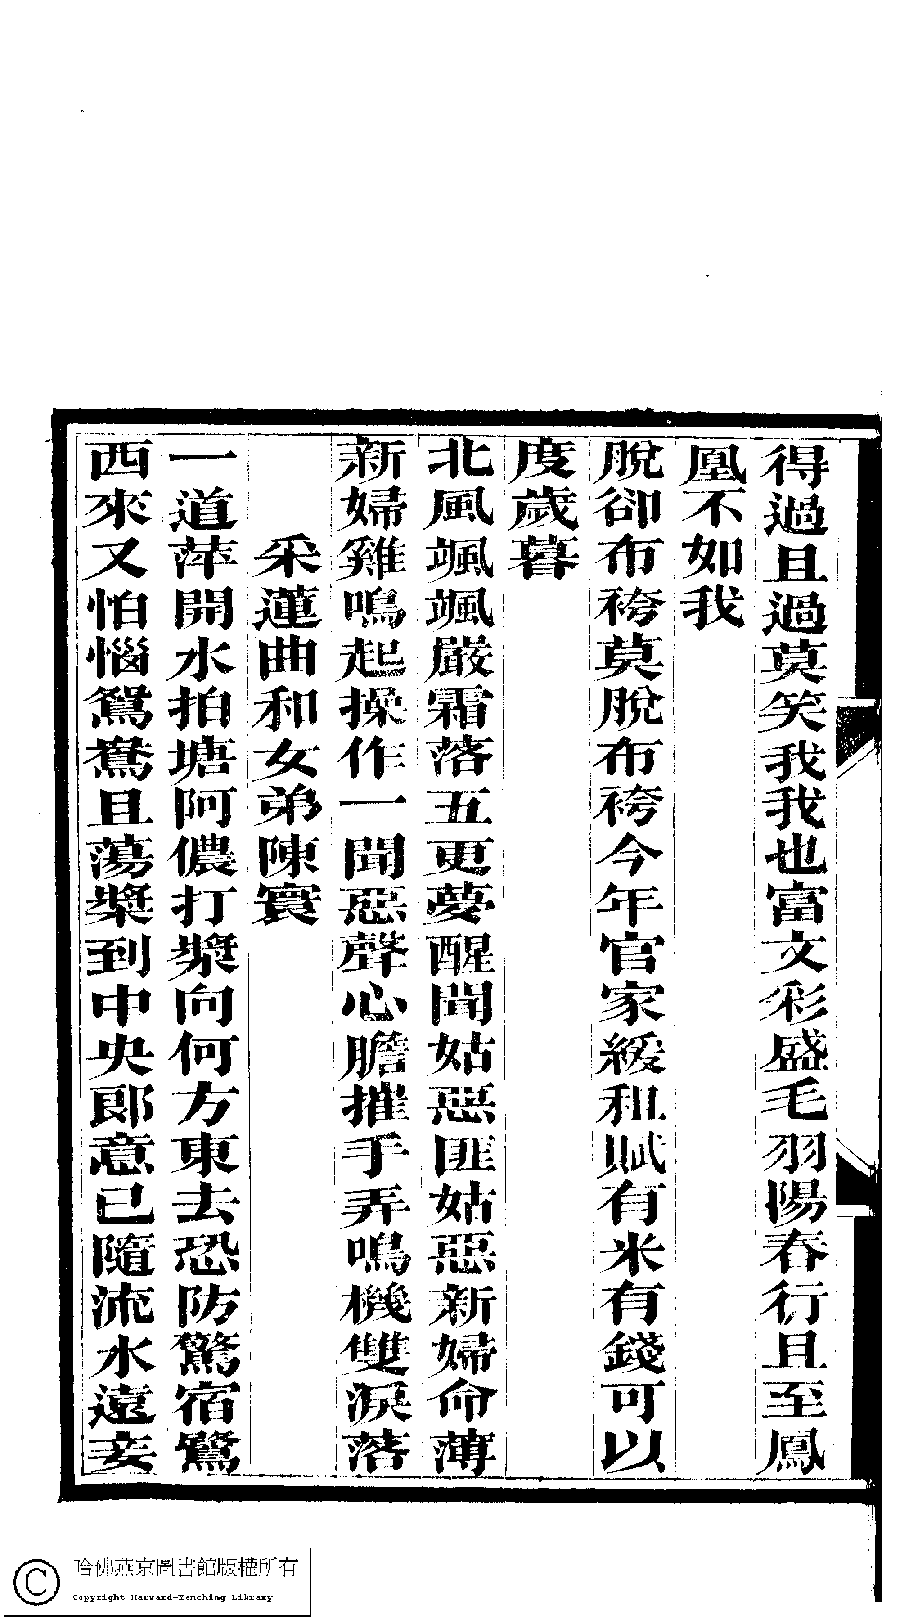 得過且過莫笑我我也富文彩盛毛羽陽春行且至鳳
凰不如我
脫卻布袴莫脫布袴今年官家緩租賦有米有錢可以
度歲暮
北風颯颯嚴霜落五更夢醒聞姑惡匪姑惡新婦命薄
新婦雞鳴起操作一聞惡聲心膽摧手弄鳴機雙淚落
采蓮曲和女弟陳寰
一道萍開水拍塘阿儂打槳向何方東去恐防驚宿鷺
西來又怕惱鴛鴦且蕩槳到中央郎意已隨流水遠妾
哈佛燕京圖書館版權所有
Copyright Harvard-Yenching Library